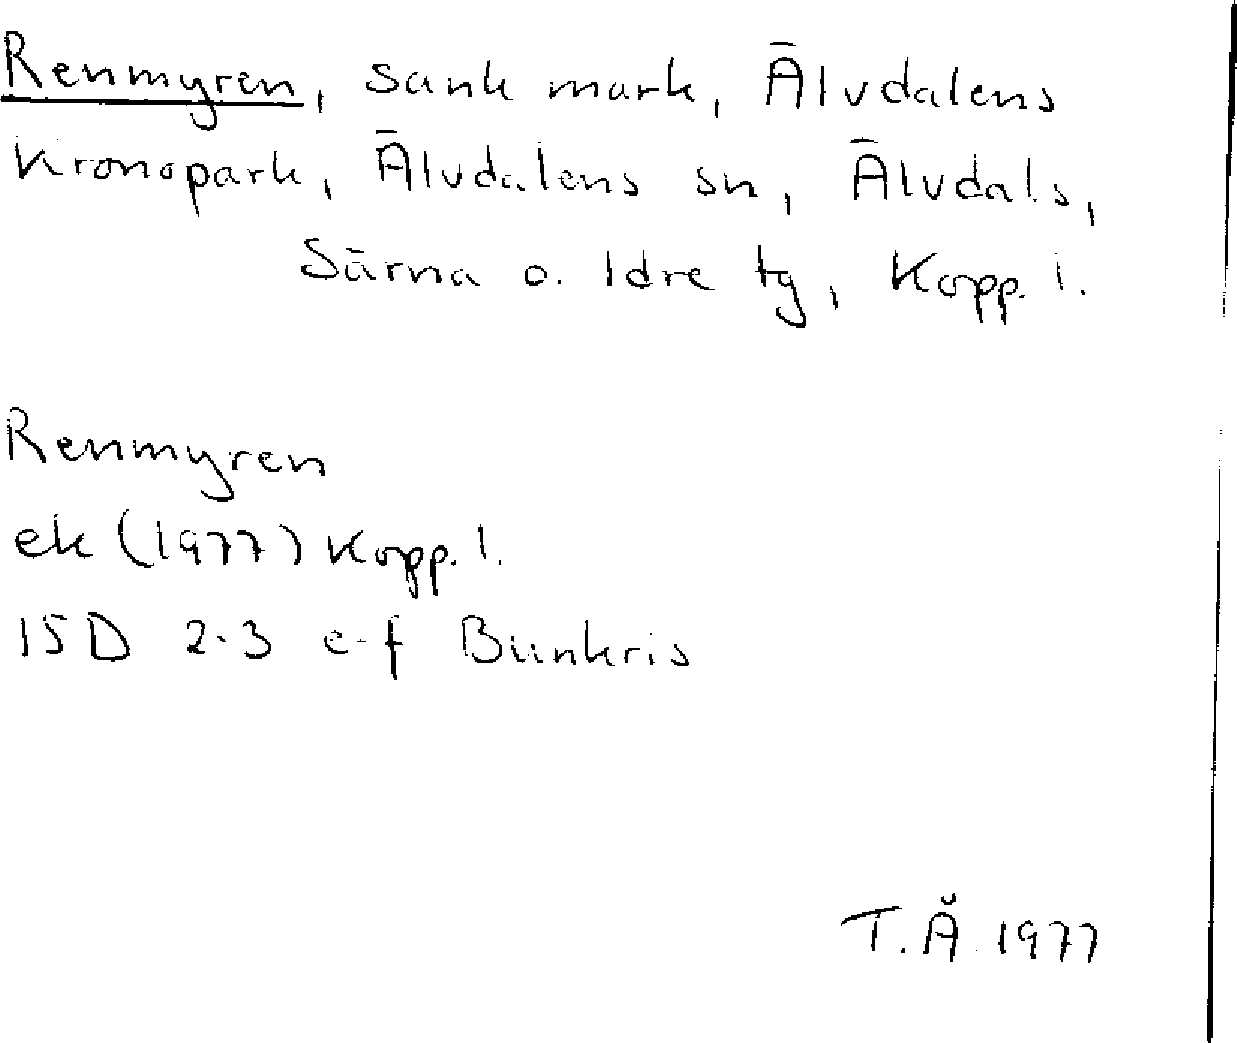 Renmyren, sank mark, Älvdalens
Kronopark, Älvdalens sn, Älvdals,
Särna o. Idre tg, Kopp. l.
Renmyren
ek (1977) Kopp. l.
15D 2-3 e-f Bunkris
T.Å. 1977